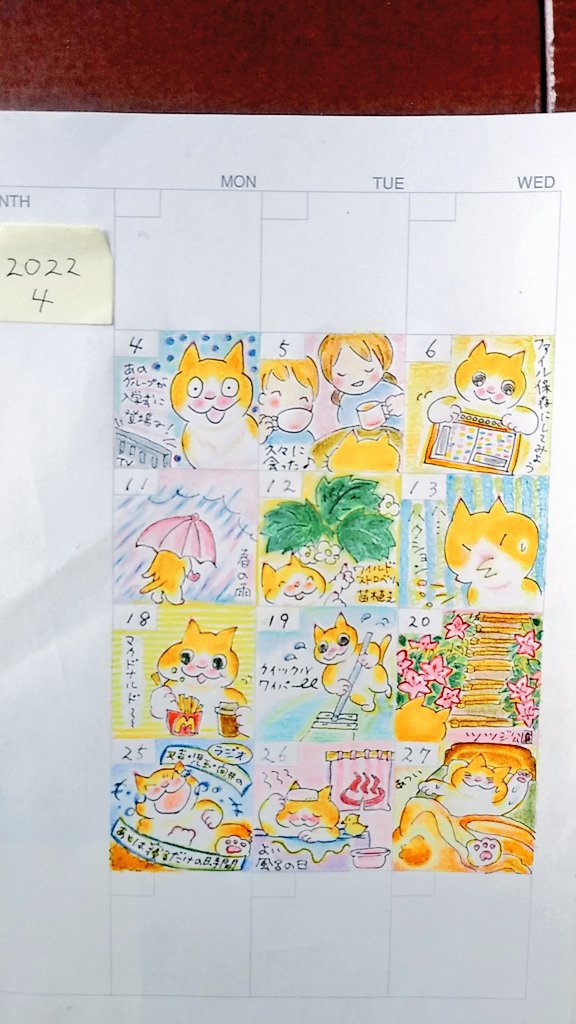 NTH
MON
TUE
WED
2022
4
4
あの
グループが
入学式に
登場な!
TV
5
久々に
会ったよ
6
ファイル保存にしてみよう
11
春の雨
12
ワイルド
ストロベリー
苗植え
13
ヘ…
ヘクション!
18
マクドナルド〜
M
19
クイックル
ワイパー
20
ツツジ公園
25
ラジオ
児玉・向井の
あとは寝るだけの時間
26
よい
風呂の日
27
あつい